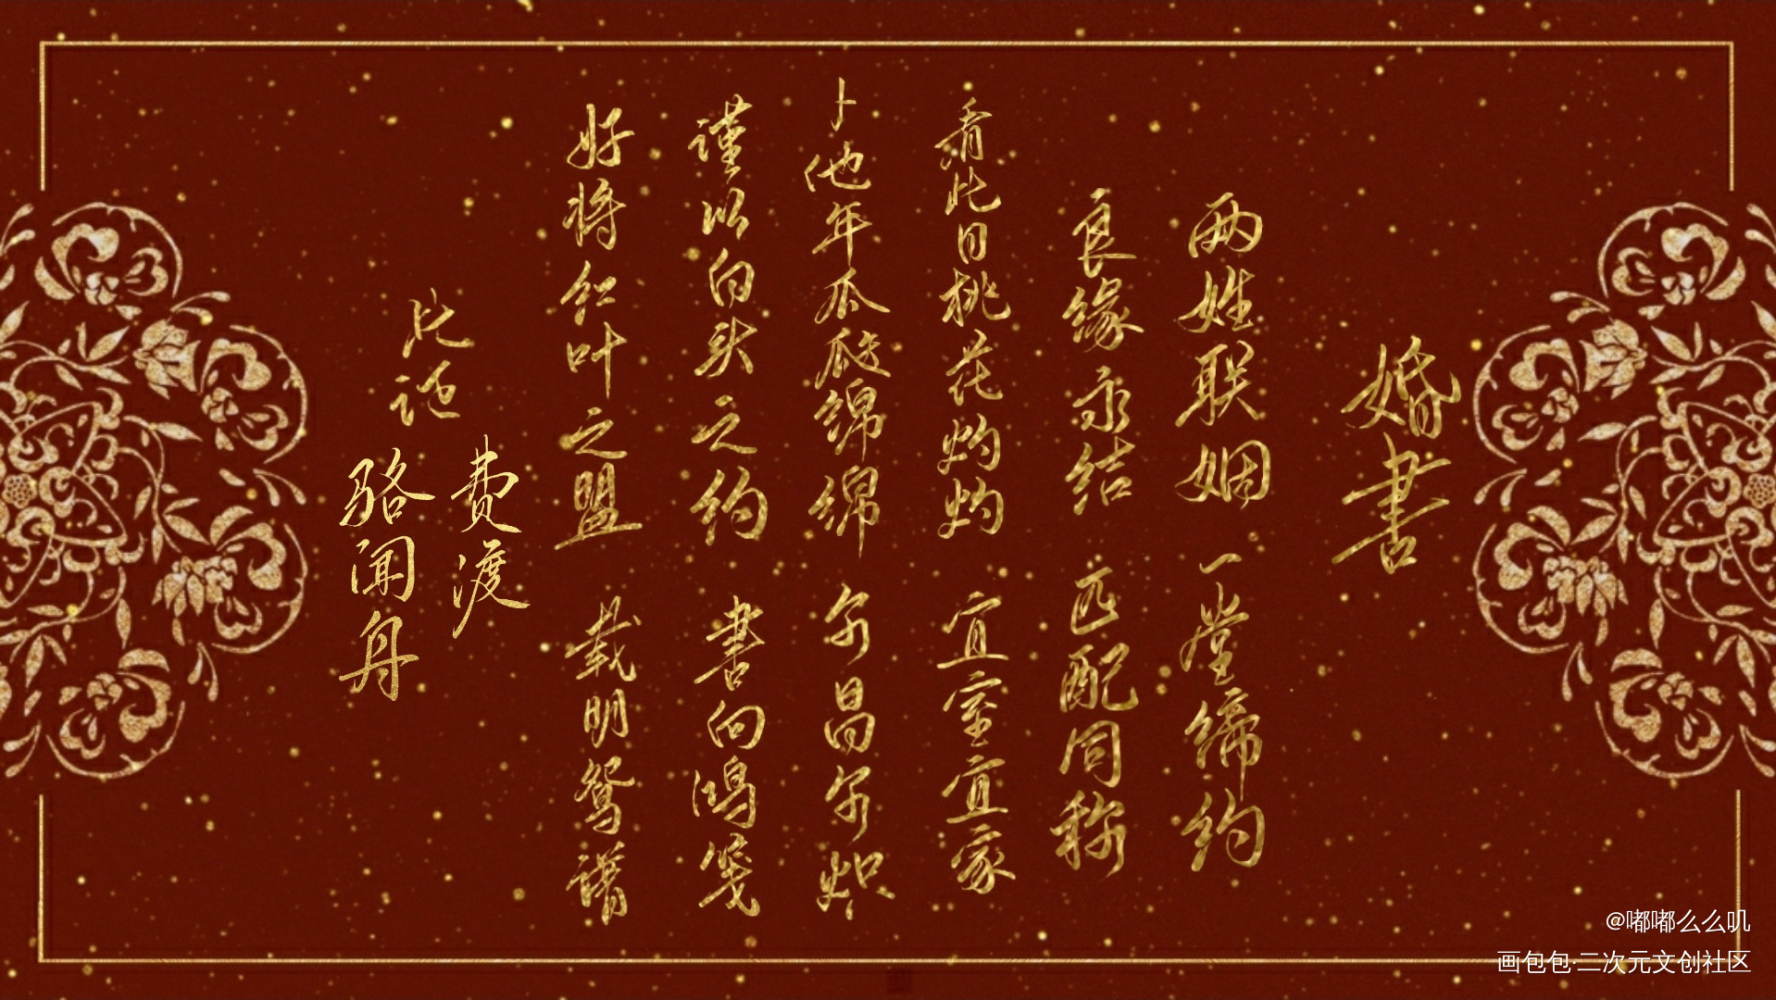 婚書
两姓联姻 一堂缔约
良缘永结 匹配同称
看此日桃花灼灼 宜室宜家
卜他年瓜瓞绵绵 尔昌尔炽
谨以白头之约 書向鸿笺
好将红叶之盟 载明鸳谱
此证
费渡
骆闻舟
@嘟嘟么么叽
画包包·二次元文创社区